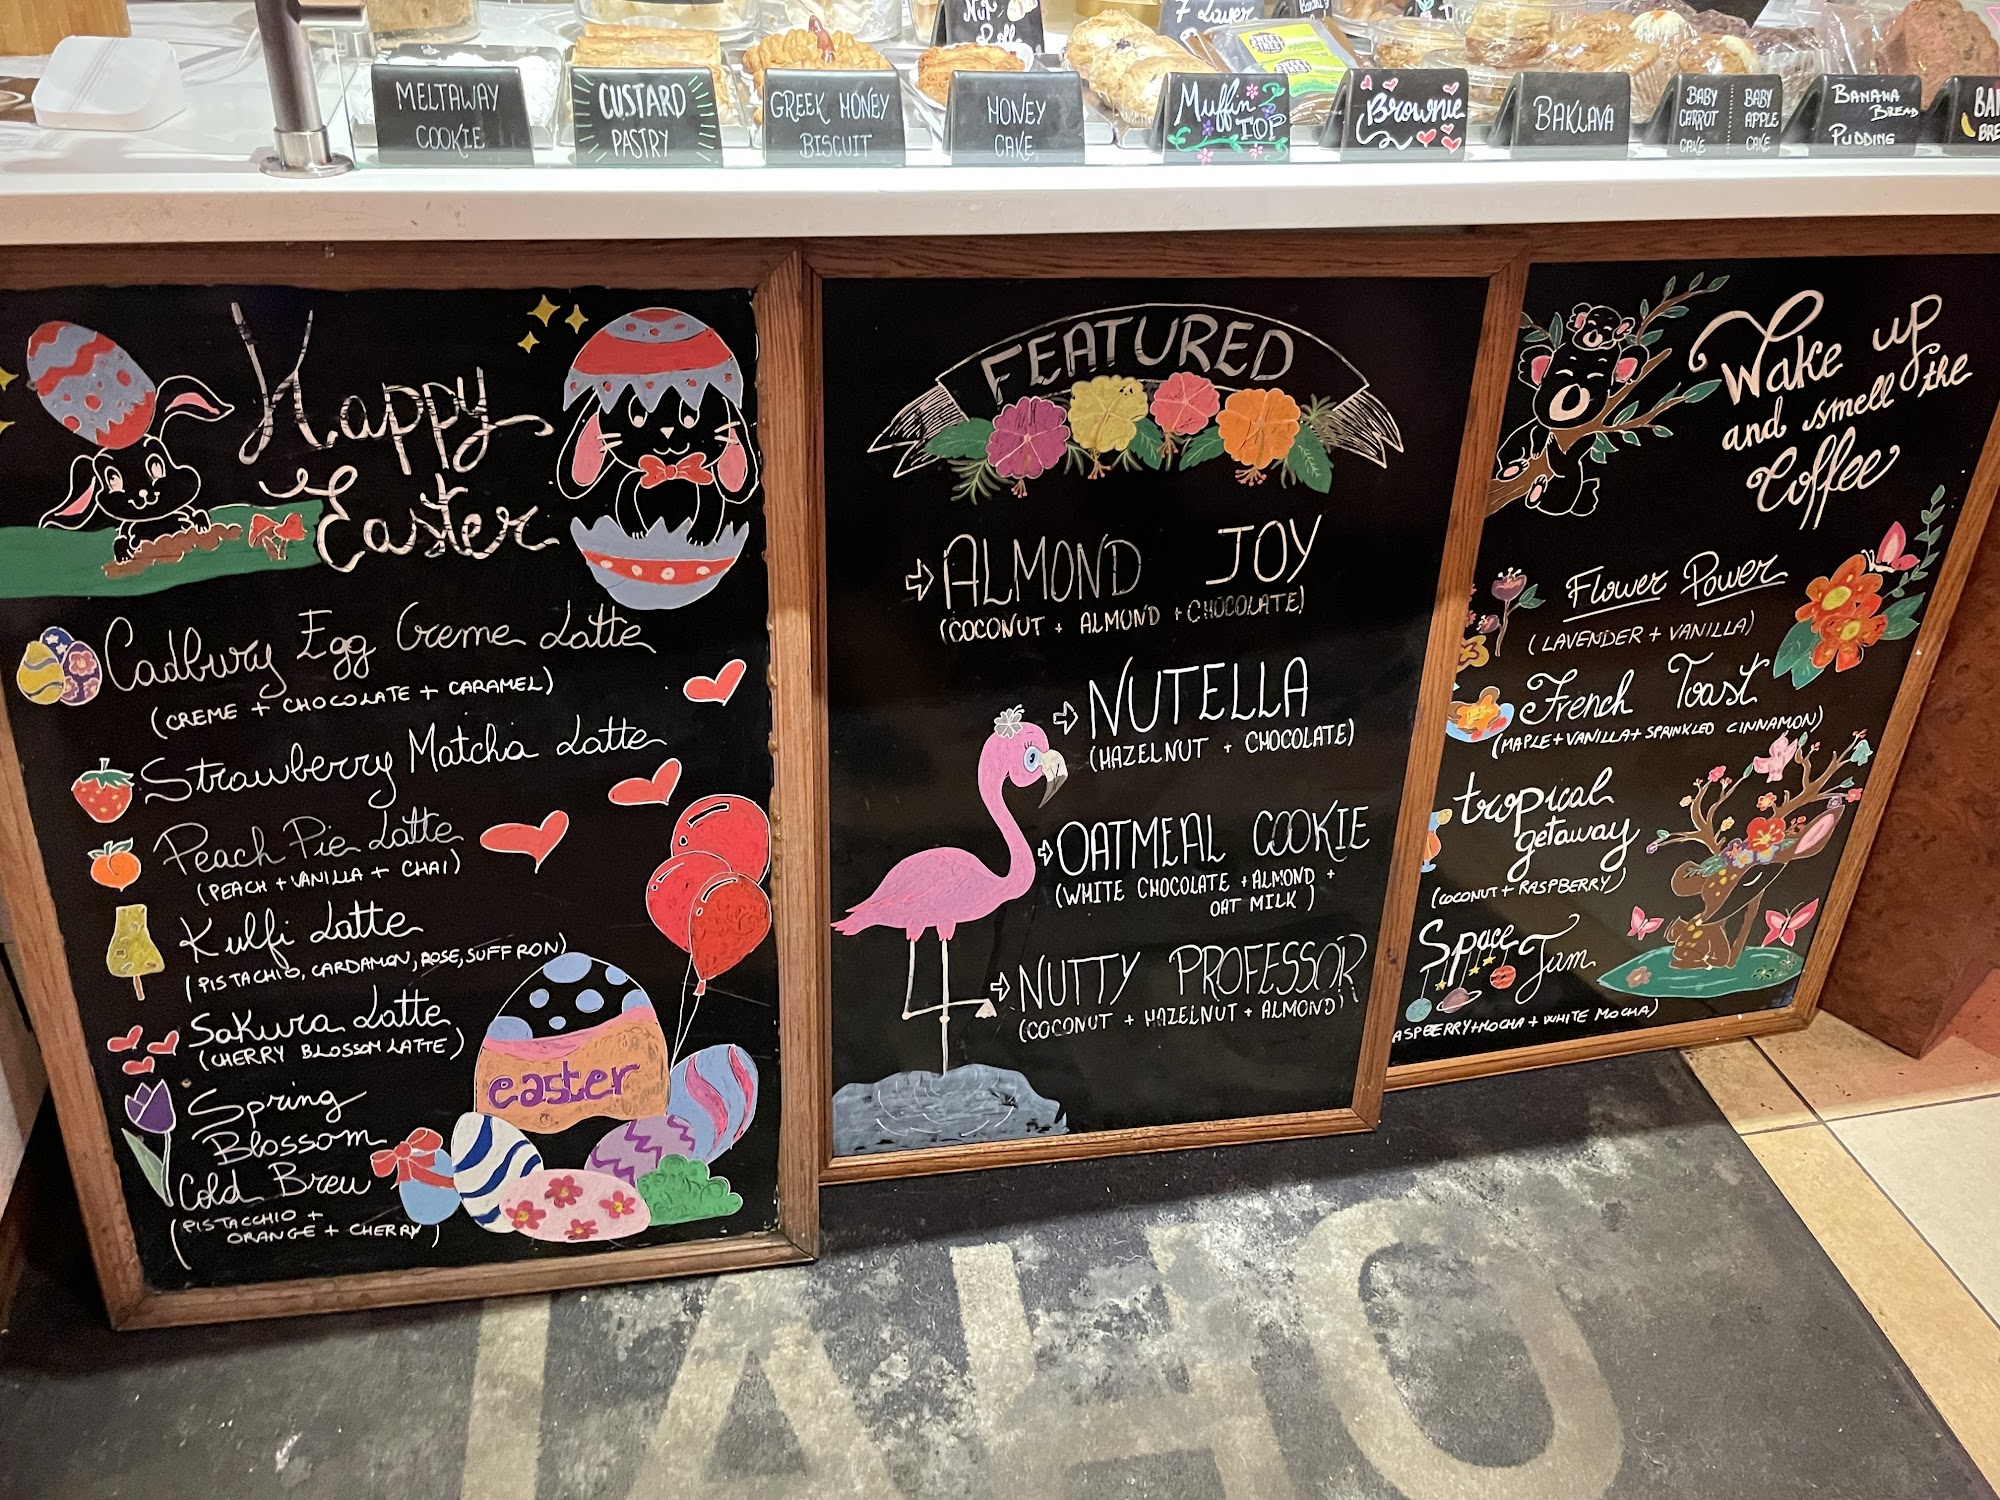 Nut
Roll
7 Layer
SWEET
STREET
MELTAWAY
COOKIE
CUSTARD
PASTRY
GREEK HONEY
BISCUIT
HONEY
CAKE
Muffin
TOP
Brownie
BAKLAVA
BABY
CARROT
CAKE
BABY
APPLE
CAKE
BANANA
BREAD
PUDDING
Happy
Easter
Cadbury Egg Creme Latte
(CREME + CHOCOLATE + CARAMEL)
Strawberry Matcha Latte
Peach Pie Latte
(PEACH + VANILLA + CHAI)
Kulfi Latte
(PISTACHIO, CARDAMON, ROSE, SUFFRON)
Sakura Latte
(CHERRY BLOSSOM LATTE)
Spring
Blossom
Cold Brew
(PISTACCHIO +
ORANGE + CHERRY)
easter
FEATURED
ALMOND JOY
(COCONUT + ALMOND + CHOCOLATE)
NUTELLA
(HAZELNUT + CHOCOLATE)
OATMEAL COOKIE
(WHITE CHOCOLATE + ALMOND +
OAT MILK)
NUTTY PROFESSOR
(COCONUT + HAZELNUT + ALMOND)
Wake up
and smell the
Coffee
Flower Power
(LAVENDER + VANILLA)
French Toast
(MAPLE + VANILLA + SPRINKLED CINNAMON)
tropical
getaway
(COCONUT + RASPBERRY)
Space
Jam
ASPBERRY + MOCHA + WHITE MOCHA)